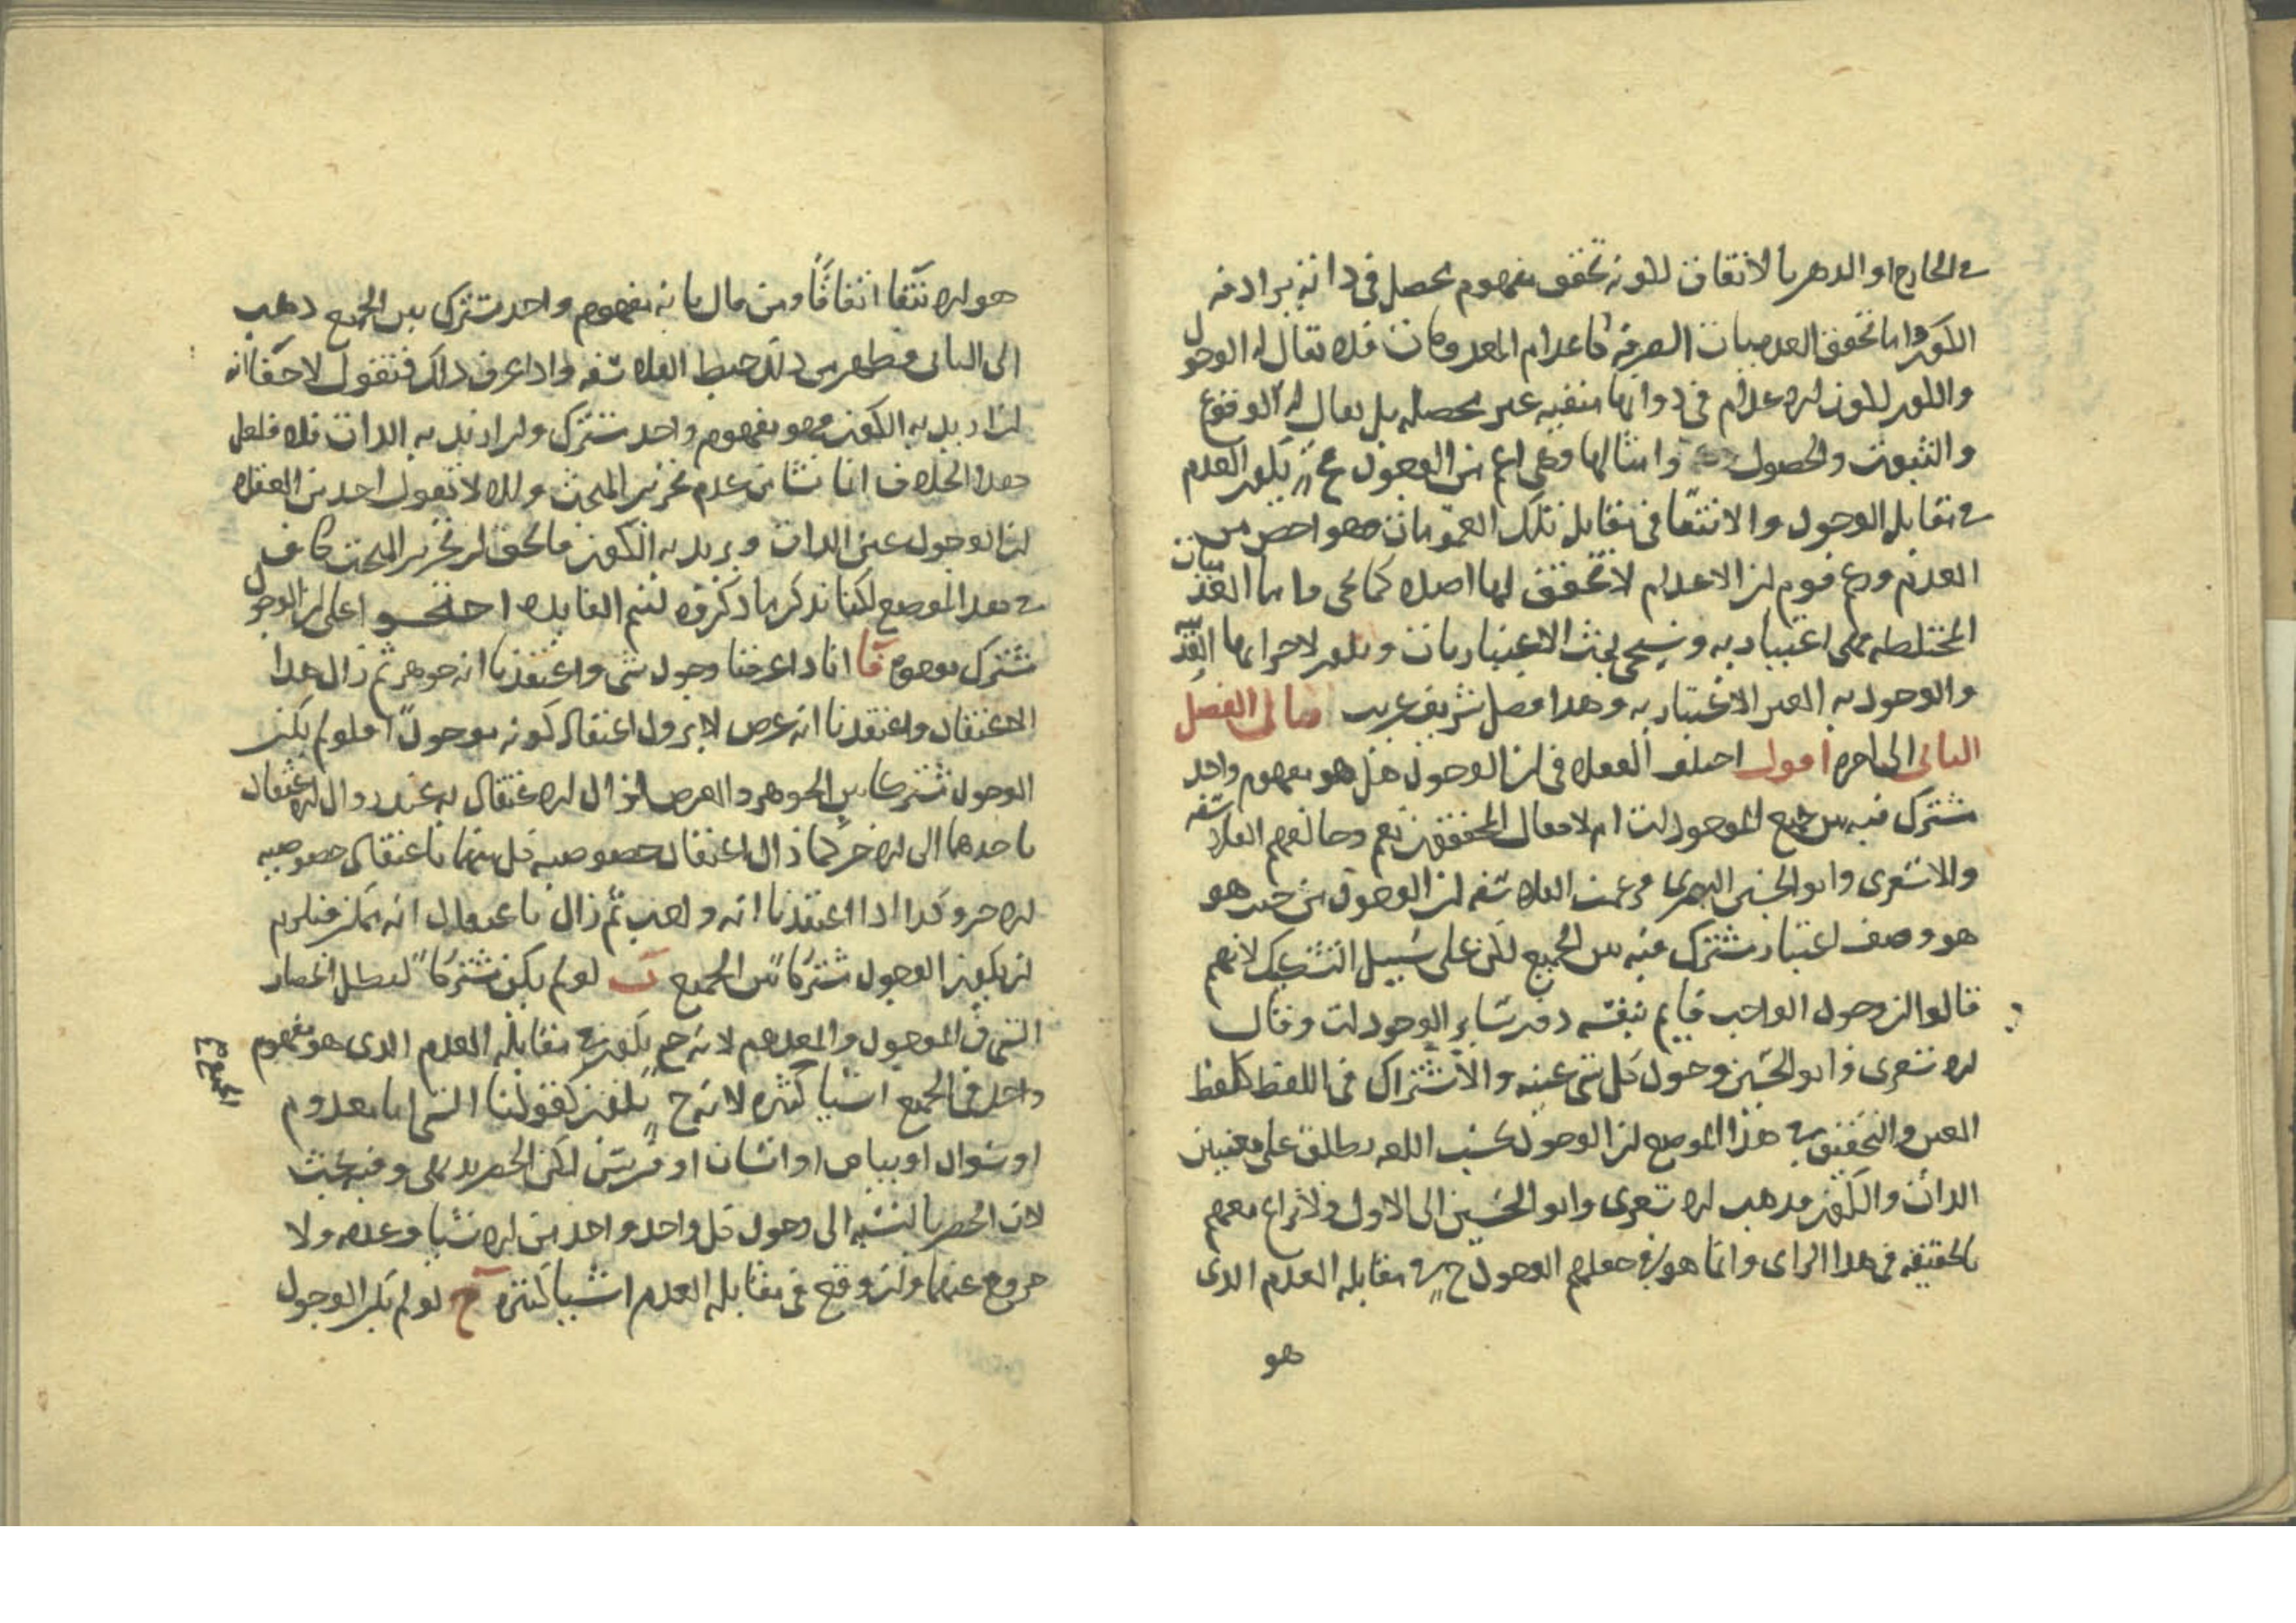 في الخارج او الذهن بالاتفاق لكونه تحقق مفهوم يحصل في ذاته يرادفه
الكون واما تحقق العدميات الصرفة كاعدام المعدومات فلا يقال له الوجود
والكون لكون الاعدام في ذواتها منفية غير محصله بل يقال له الوقوع
والثبوت والحصول وامثالها وهي اعم من الوجود فح يكون العدم
في مقابل الوجود والانتفا في مقابل تلك العمومات وهو اخص من
العدم وزعم قوم ان الاعدام لا تحقق لها اصلا كما يجي واما العدميات
المختلطه فهي اعتباريه وسيجي بحث الاعتباريات ويكون لاجزايها
والوجوديه الغير الاعتباريه وهذا فصل شريف غريب قال الفصل
الثاني الى اخره اقول اختلف العقلا في ان الوجود هل هو مفهوم واحد
مشترك فيه بين جميع الموجودات ام لا فقال المحققون نعم وخالفهم الفلاسفه
والاشعري وابو الحسين البصري فزعمت الفلاسفه ان الوجود من حيث هو
هو وصف اعتبار مشترك فيه بين الجميع لكن على سبيل التشكيك لانهم
قالوا ان وجود الواجب قايم بنفسه دون ساير الوجودات وقال
الاشعري وابو الحسين وجود كل شي عينه والاشتراك في اللفظ كلفظ
العين والتحقيق في هذا الموضع ان الوجود بحسب اللغه يطلق على معنيين
الذات والكون فذهب الاشعري وابو الحسين الى الاول ولا نزاع معهم
بالحقيقه في هذا الراي وانما هو في جعلهم الوجود ح في مقابله العدم الذي
هو
هو الانتفا اتفاقًا ومن قال بانه مفهوم واحد مشترك بين الجميع ذهب
الى الثاني فظهر من ذلك خبط الفلاسفه واذا عرف ذلك فنقول لا خفا انه
ان اريد به الكون فهو مفهوم واحد مشترك وان اريد به الذات فلا فلعل
هذا الخلاف انما نشا من عدم تحرير المبحث والا لا يقول احد من العقلا
ان الوجود عين الذات ويريد به الكون فالحق ان تحرير المبحث كاف
في هذا الموضع لكنا نذكر ما ذكروه لتتم الفايده احتجوا على ان الوجود
مشترك بوجوه آ انا اذا عرفنا وجود شي واعتقدنا انه جوهر ثم زال هذا
الاعتقاد واعتقدنا انه عرض لا يزول اعتقاد كونه موجودًا فلو لم يكن
الوجود مشتركا بين الجوهر والعرض لزال الاعتقاد به عند زوال الاعتقاد
باحدهما الى الاخر كما زال اعتقاد خصوصيه كل منهما باعتقاد خصوصيه
الاخر وكذا اذا اعتقدنا انه واجب ثم زال باعتقاد انه ممكن فيلزم
ان يكون الوجود مشتركًا بين الجميع ب لو لم يكن مشتركًا لبطل انحصار
الشي في الموجود والمعدوم لانه ح يكون في مقابله العدم الذي هو مفهوم
واحد في الجميع اشيا كثيره لانه ح يكون كقولنا الشي اما معدوم
او سواد او بياض او انسان او فرس لكن الحصر بديهي وفيه بحث
لان الحصر بالنسبه الى وجود كل واحد واحد من الاشيا وعدمه ولا
خروج عنهما وان وقع في مقابله العدم اشيا كثيره ج لو لم يكن الوجود